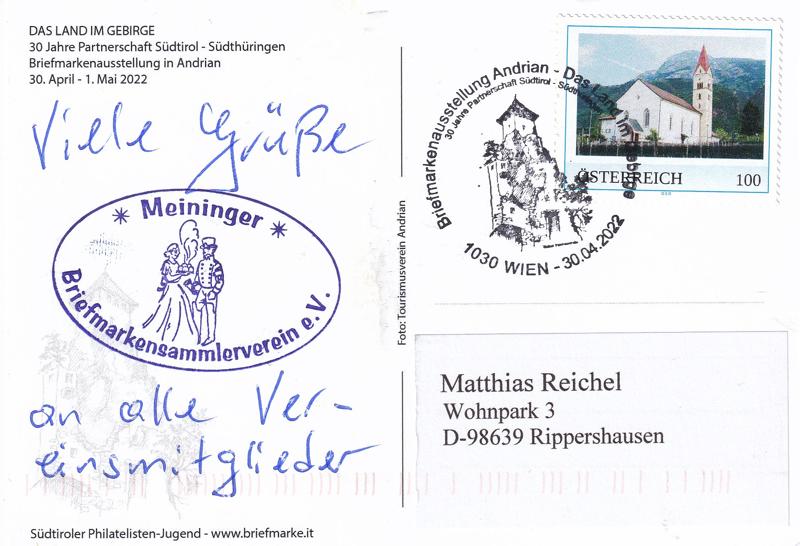 DAS LAND IM GEBIRGE
30 Jahre Partnerschaft Südtirol - Südthüringen
Briefmarkenausstellung in Andrian
30. April - 1. Mai 2022
Viele Grüße
* Meininger *
Briefmarkensammlerverein e.V.
an alle Ver-
einsmitglieder
Südtiroler Philatelisten-Jugend - www.briefmarke.it
Foto: Tourismusverein Andrian
Briefmarkenausstellung Andrian - Das Land im Gebirge
30 Jahre Partnerschaft Südtirol - Südthüringen
1030 WIEN - 30.04.2022
ÖSTERREICH 100
Matthias Reichel
Wohnpark 3
D-98639 Rippershausen